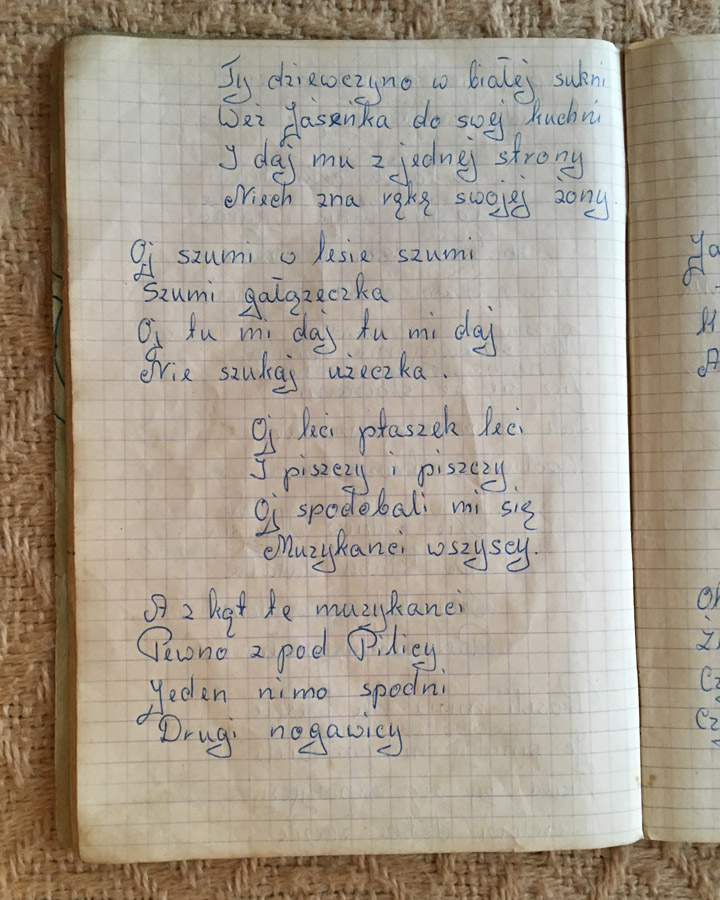 Ty dziewczyno w białej sukni
Weź Jasieńka do swej kuchni
I daj mu z jednej strony
Niech zna rękę swojej żony.
Oj szumi w lesie szumi
Szumi gałązeczka
Oj tu mi daj tu mi daj
Nie szukaj użeczka.
Oj leci ptaszek leci
I piszczy i piszczy
Oj spodobali mi się
Muzykanci wszyscy.
A z kąt te muzykanci
Pewno z pod Pilicy
Jeden nimo spodni
Drugi nogawicy